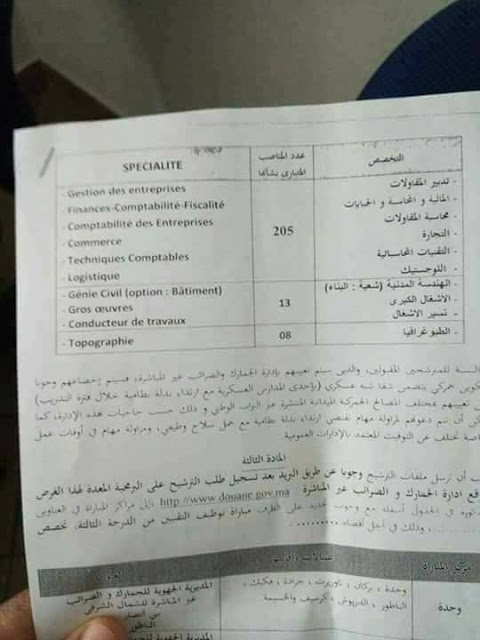 SPECIALITE
عدد المناصب المتبارى بشأنها
التخصص
- Gestion des entreprises
- Finances-Comptabilité-Fiscalité
- Comptabilité des Entreprises
- Commerce
- Techniques Comptables
- Logistique
205
- تدبير المقاولات
- المالية و المحاسبة و الجبايات
- محاسبة المقاولات
- التجارة
- التقنيات المحاسباتية
- اللوجستيك
- Génie Civil (option : Bâtiment)
- Gros œuvres
- Conducteur de travaux
13
- الهندسة المدنية (شعبة : البناء)
- الأشغال الكبرى
- تسيير الأشغال
- Topographie
08
- الطبوغرافيا
النسبة للمترشحين المقبولين، والذين سيتم تعيينهم بإدارة الجمارك والضرائب غير المباشرة، فسيتم إخضاعهم وجوبا
تكوين جمركي يتضمن شقا شبه عسكري (بإحدى المدارس العسكرية مع ارتداء بذلة نظامية خلال فترة التدريب)
تعيينهم بمختلف المصالح الجمركية الميدانية المنتشرة عبر التراب الوطني و ذلك حسب حاجيات هذه الإدارة، كما
كن أن تتم دعوتهم لمزاولة مهام تقتضي ارتداء بذلة نظامية مع حمل سلاح وظيفي، ومزاولة مهام في أوقات عمل
خاصة تختلف عن التوقيت المعتمد بالإدارات العمومية
المادة الثالثة
ب أن ترسل ملفات الترشيح وجوبا عن طريق البريد بعد تسجيل طلب الترشيح على البرمجية المعدة لهذا الغرض
قع ادارة الجمارك و الضرائب غير المباشرة http://www.douane.gov.ma إلى مراكز المباراة في العناوين
في الجدول أسفله مع وجوب تحديد على الظرف مباراة توظيف التقنيين من الدرجة الثالثة، تخصص
......... وذلك في أجل أقصاه
مركز المباراة
وجدة
وجدة ، بركان ، تاوريرت ، جرادة ، فكيك ،
الناظور ، الدريوش ، كرسيف والحسيمة
المديرية الجهوية للجمارك و الضرائب
غير المباشرة للشمال الشرقي
الناظور